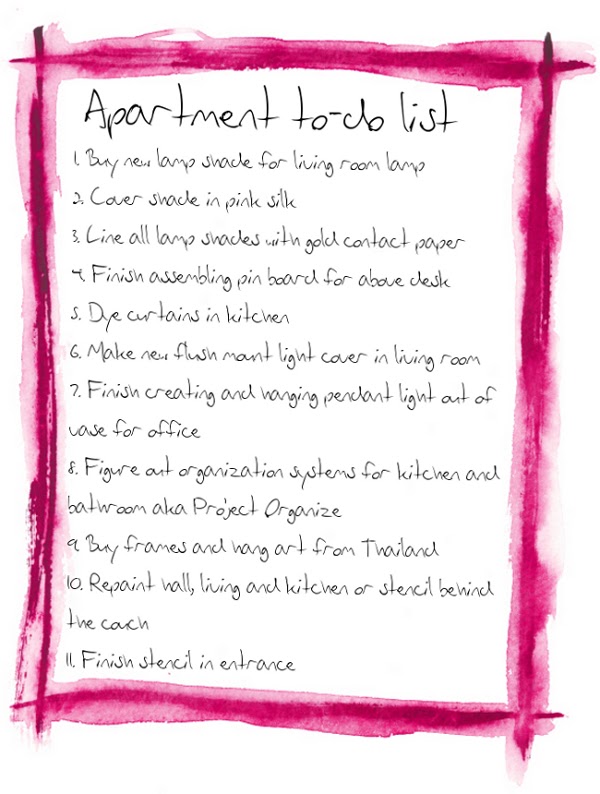 Apartment to-do list
1. Buy new lamp shade for living room lamp
2. Cover shade in pink silk
3. Line all lamp shades with gold contact paper
4. Finish assembling pin board for above desk
5. Dye curtains in kitchen
6. Make new flush mount light cover in living room
7. Finish creating and hanging pendant light out of
vase for office
8. Figure out organization systems for kitchen and
bathroom aka Project Organize
9. Buy frames and hang art from Thailand
10. Repaint hall, living and kitchen or stencil behind
the couch
11. Finish stencil in entrance